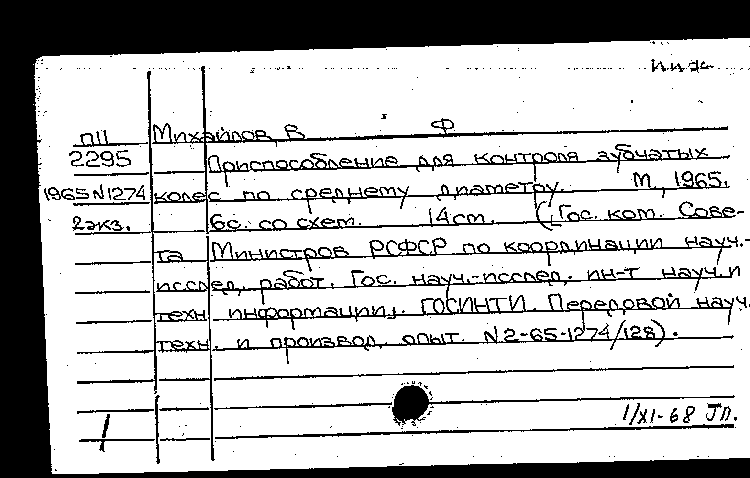 П11 Михайлов, В Ф
2295 Приспособление для контроля зубчатых
1965 N1274 колес по среднему диаметру. М, 1965.
2экз. 6с. со схем. 14см. (Гос. ком. Сове-
та Министров РСФСР по координации науч.-
исслед. работ. Гос. науч.-исслед. ин-т науч. и
техн. информации. ГОСИНТИ. Передовой науч.
техн. и производ. опыт. N2-65-1274/128).
1/XI-68